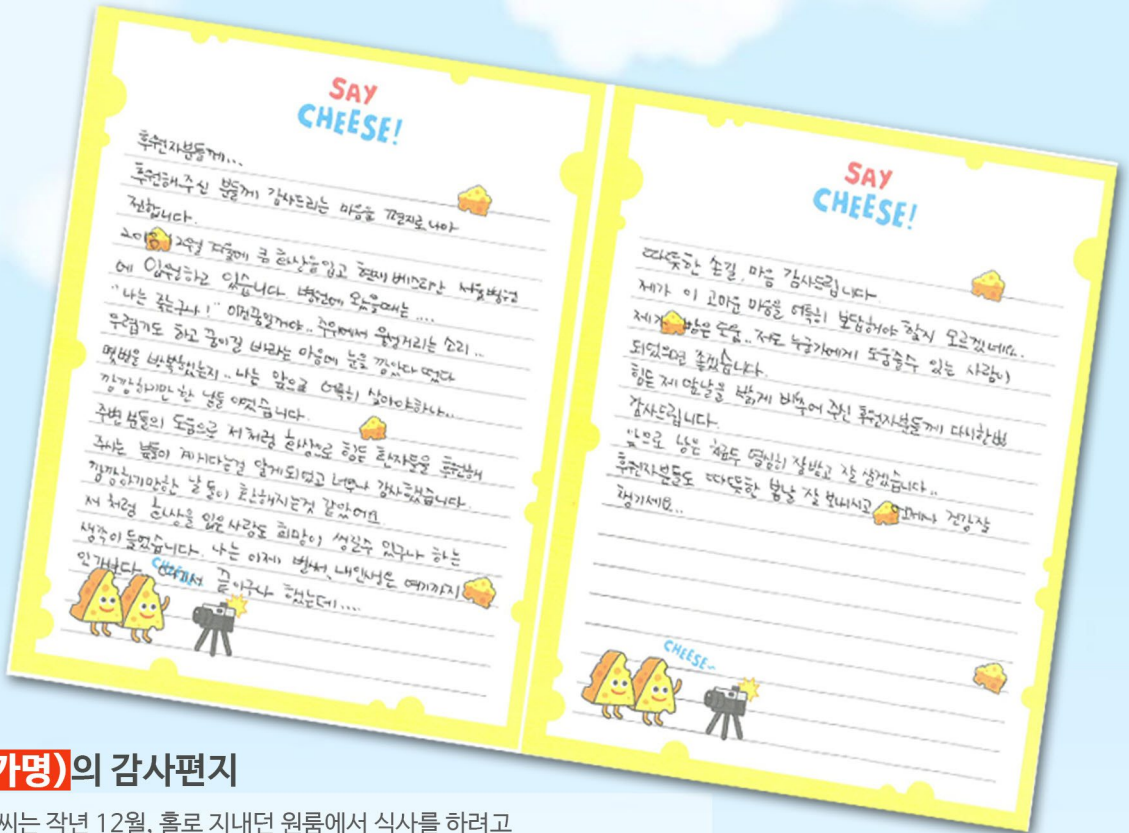 SAY
CHEESE!
후원자분들께...
후원해주신 분들께 감사드리는 마음을 편지로나마
전합니다.
12월 겨울에 큰 화상을입고 현재 베스티안 서울병원
에 입원하고 있습니다. 병원에 왔을때는 ....
"나는 죽는구나!" 이건꿈일꺼야.. 주위에서 웅성거리는 소리..
무렵기도 하고 꿈이길 바라는 마음에 눈을 깜았다 떴다
몇번을 반복했는지.. 나는 앞으로 어떻히 살아야하나..
깜깜하기만한 날들 이였습니다.
주변분들의 도움으로 저처럼 화상으로 힘든 환자들을 후원해
주시는 분들이 계시다는걸 알게되었고 너무나 감사했습니다.
깜깜하기만한 날들이 환해지는것 같았어요
저 처럼 화상을 입은사람도 희망이 생길수 있구나 하는
생각이 들었습니다. 나는 이제 벌써, 내인생은 여기까지
인가보다.. 여기서 끝이구나 했는데....
CHEESE~
SAY
CHEESE!
따뜻한 손길, 마음 감사드립니다
제가 이 고마운 마음을 어떻히 보답해야 할지 모르겠네요.
제가 받은 도움.. 저도 누군가에게 도움줄수 있는 사람이
되었으면 좋겠습니다.
힘든 제 앞날을 밝게 비추어 주신 후원자분들께 다시한번
감사드립니다.
앞으로 남은 치료두 열심히 잘받고 잘 살겠습니다..
후원자분들도 따뜻한 봄날 잘 보내시고 언제나 건강잘
챙기세요...
CHEESE~
가명)의 감사편지
씨는 작년 12월, 홀로 지내던 원룸에서 식사를 하려고